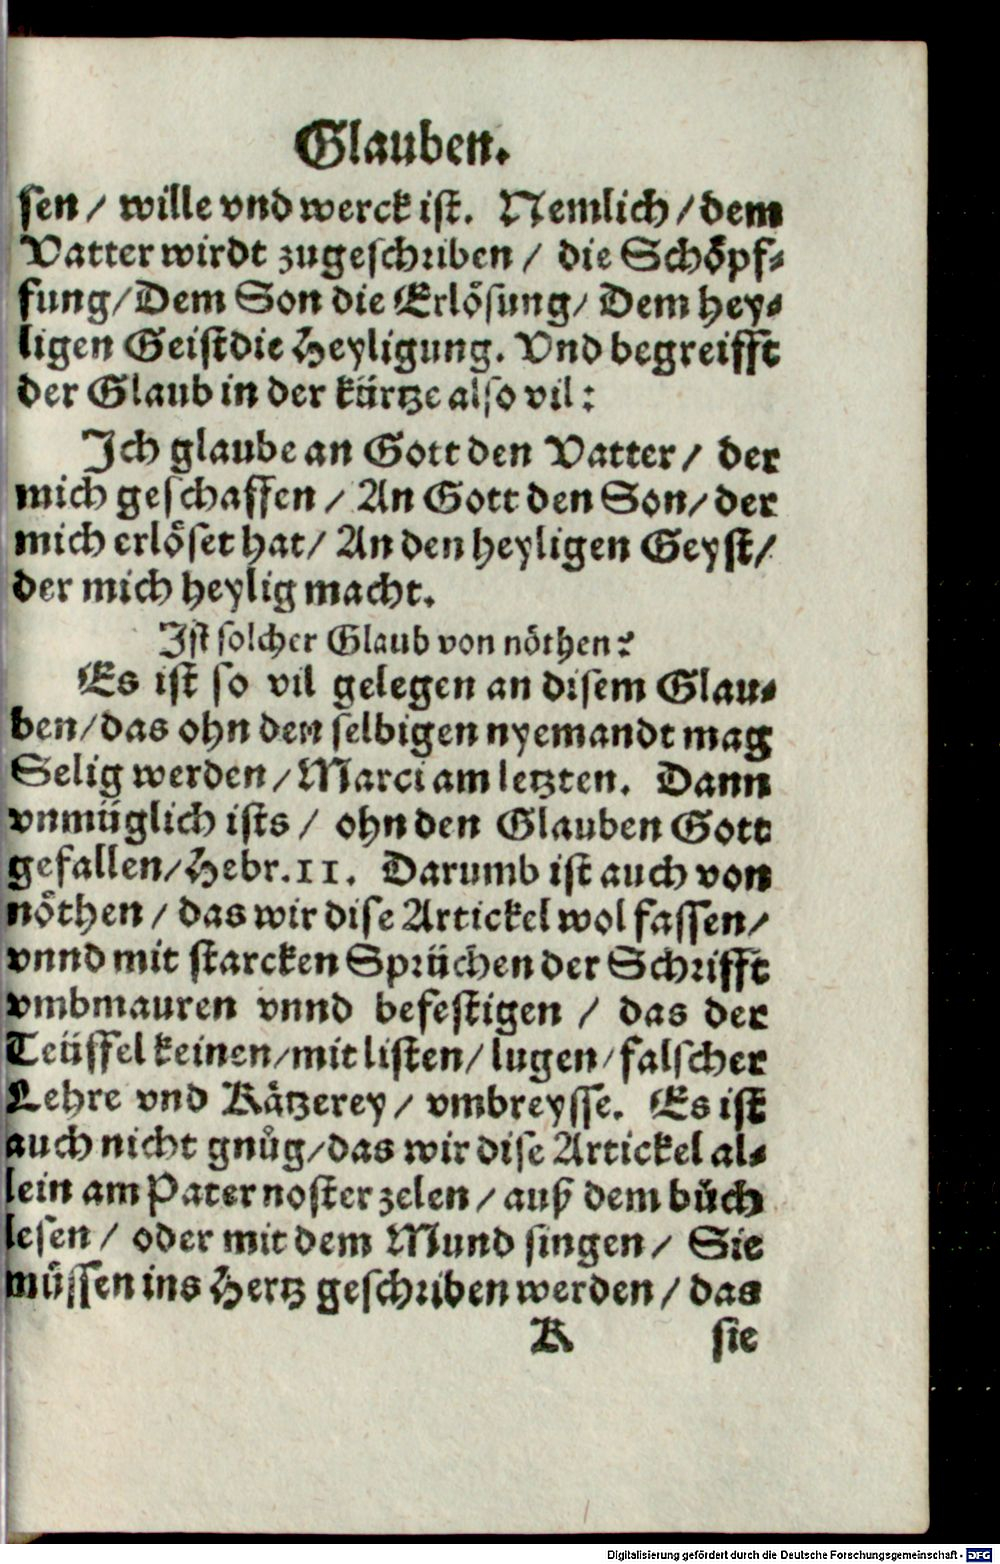 Glauben.
sen / wille vnd werck ist. Nemlich / dem
Vatter wirdt zugeschriben / die Schöpf-
fung / Dem Son die Erlösung / Dem hey-
ligen Geist die Heyligung. Vnd begreifft
der Glaub in der kürtze also vil:
Ich glaube an Gott den Vatter / der
mich geschaffen / An Gott den Son / der
mich erlöset hat / An den heyligen Geyst /
der mich heylig macht.
Ist solcher Glaub von nöthen?
Es ist so vil gelegen an disem Glau-
ben / das ohn den selbigen nyemandt mag
Selig werden / Marci am letzten. Dann
vnmüglich ists / ohn den Glauben Gott
gefallen / Hebr. 11. Darumb ist auch von
nöthen / das wir dise Artickel wol fassen /
vnnd mit starcken Sprüchen der Schrifft
vmbmauren vnnd befestigen / das der
Teüffel keinen / mit listen / lugen / falscher
Lehre vnd Kätzerey / vmbreysse. Es ist
auch nicht gnůg / das wir dise Artickel al-
lein am Pater noster zelen / auß dem bůch
lesen / oder mit dem Mund singen / Sie
müssen ins Hertz geschriben werden / das
K sie
Digitalisierung gefördert durch die Deutsche Forschungsgemeinschaft - DFG